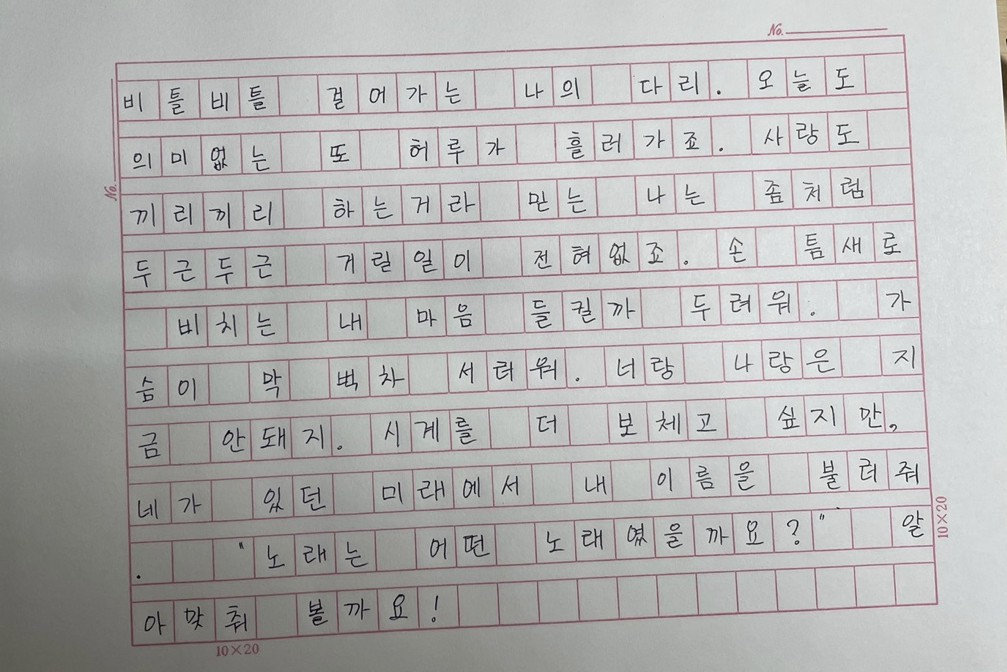 No.
비틀비틀 걸어가는 나의 다리. 오늘도
의미없는 또 허루가 흘러가죠. 사랑도
No.
끼리끼리 하는거라 믿는 나는 좀처럼
두근두근 거릴일이 전혀없죠. 손 틈새로
비치는 내 마음 들킬까 두려워. 가
슴이 막 벅차 서러워. 너랑 나랑은 지
금 안돼지. 시계를 더 보체고 싶지만,
네가 있던 미래에서 내 이름을 불러줘
. "노래는 어떤 노래였을까요?" 알
아맞춰 볼까요!
10×20
10×20